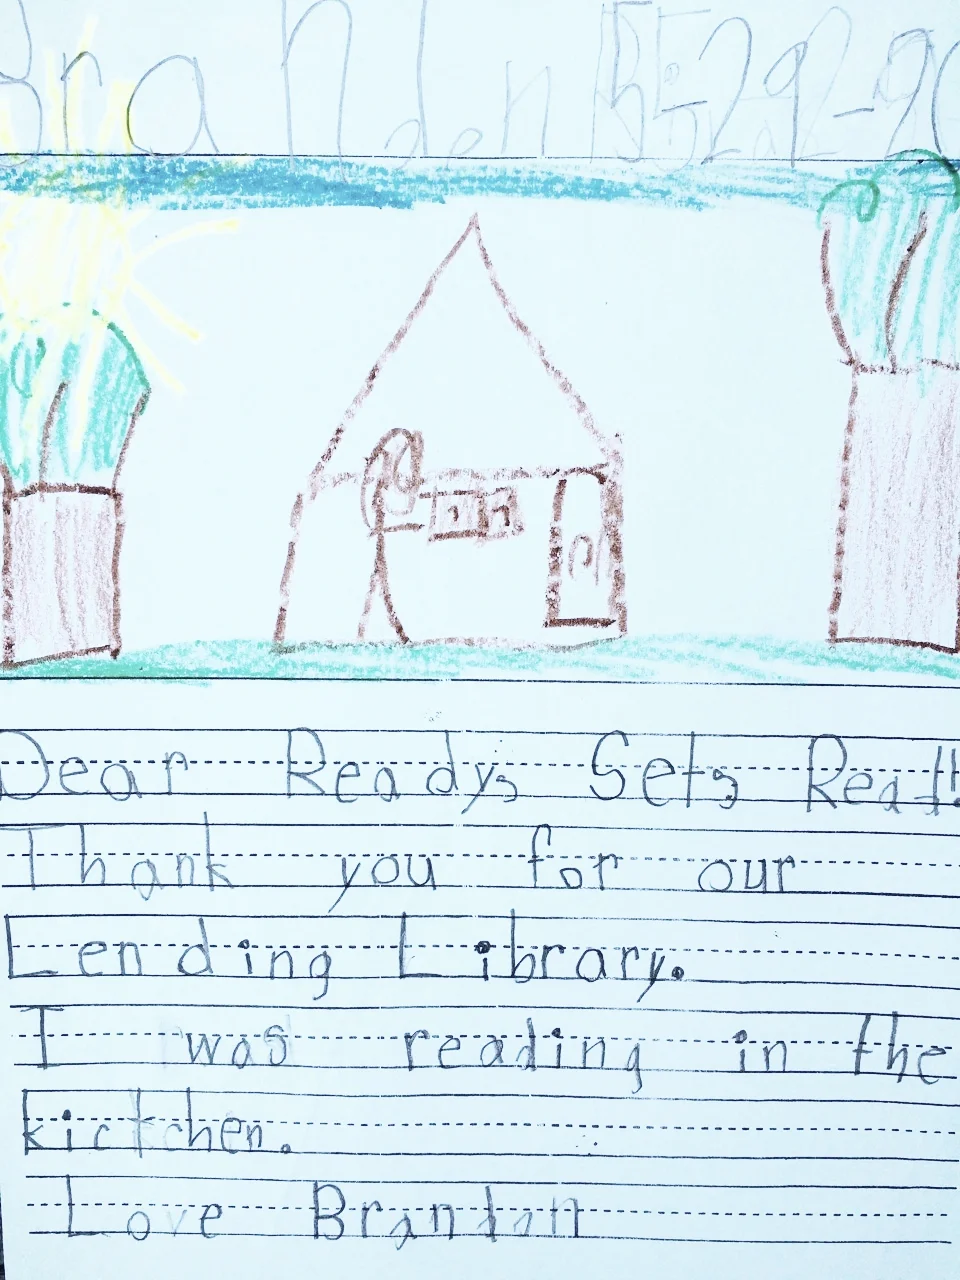 Branden 5-29-20
Dear Ready, Set, Read!
Thank you for our
Lending Library.
I was reading in the
kictchen.
Love Brandon